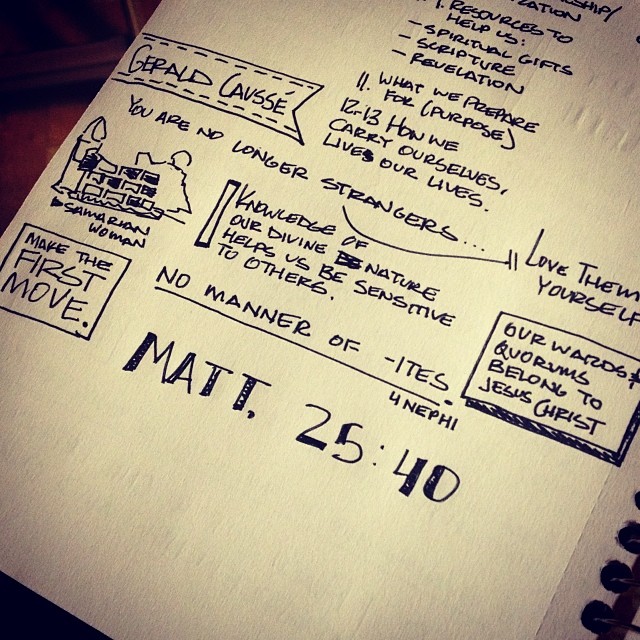 1. RESOURCES TO
HELP US:
- SPIRITUAL GIFTS
- SCRIPTURE
- REVELATION
11. WHAT WE PREPARE
FOR (PURPOSE)
12-13 HOW WE
CARRY OURSELVES,
LIVES OUR LIVES.
GERALD CAUSSÉ
YOU ARE NO LONGER STRANGERS...
SAMARIAN
WOMAN
KNOWLEDGE OF
OUR DIVINE NATURE
HELPS US BE SENSITIVE
TO OTHERS.
LOVE THEM
YOURSELF
MAKE THE
FIRST
MOVE.
NO MANNER OF -ITES.
4 NEPHI
OUR WARDS +
QUORUMS
BELONG TO
JESUS CHRIST
MATT. 25:40